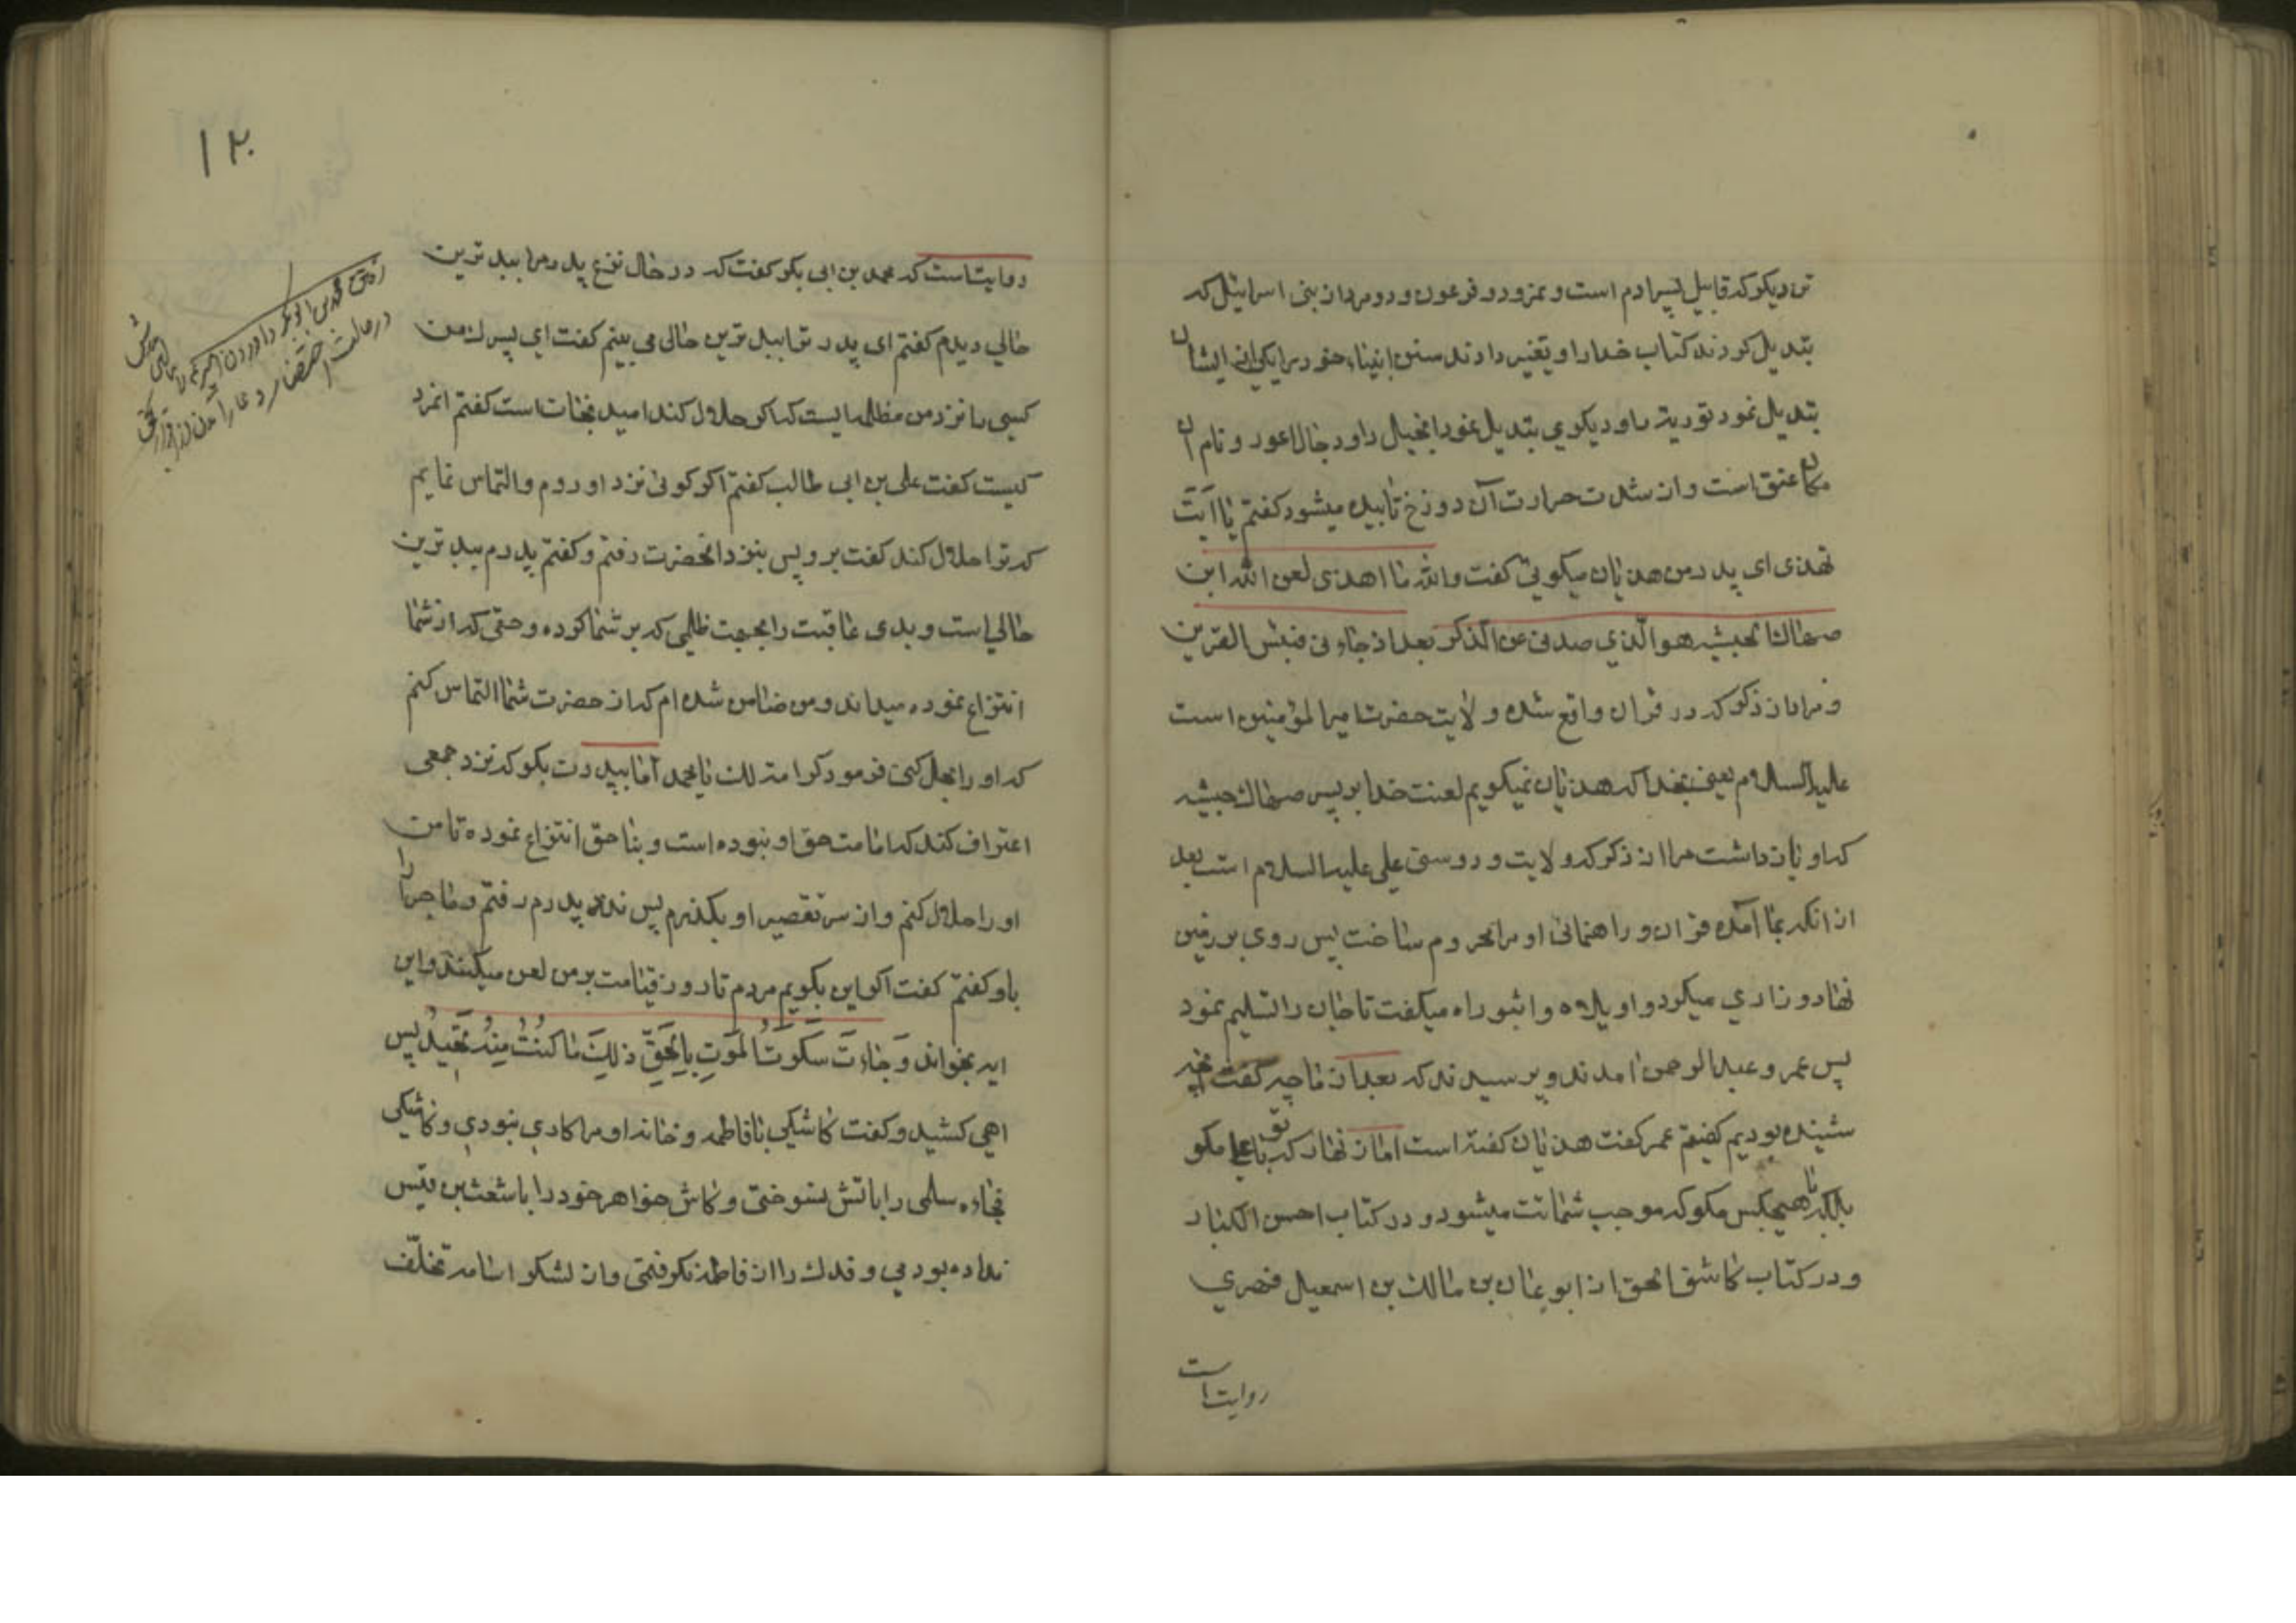 تن دیکر که قابیل پسر ادم است و نمزود و فرعون و دو مرد از بنی اسرائیل که
تبدیل کردند کتاب خدا را و تغییر دادند سنن انبیاء خود را یکی از ایشان
تبدیل نمود توریة را و دیکری تبدیل نمود انجیل را و دجال اعور و نام ان
مکان است و از شدت حرارت آن دوزخ تابیده میشود کفتم یا اَبَت
تهذی ای پدر من هذیان میکویی کفت والله ما اهذی لعن الله ابن
صهاک الحبشیه هو الّذی صدنی عن الذّکر بعد اذ جاءنی فبئس القرین
و مراد از ذکر که در قران واقع شده ولایت حضرت امیرالمؤمنین است
علیه السلام یعنی بخدا که هذیان نمیکویم لعنت خدا بر پسر صهاک حبشیه
که او باز داشت مرا از ذکر که ولایت و دوستی علی علیه السلام است بعد
از انکه بما آمده قران و راهنمائی او مرا محروم ساخت پس روی بر زمین
نهاد و زاری میکرد و واویلاه واثبوراه میکفت تا جان را تسلیم نمود
پس عمر و عبدالرحمن امدند و پرسیدند که بعد از ما چه کفت انچه
شنیده بودیم کفتیم عمر کفت هذیان کفته است اما زنهار که تو با علی مکو
بلکه با هیچکس مکو که موجب شماتت میشود و در کتاب احسن الکبار
و در کتاب کاشف الحق از ابو بن مالک بن اسمعیل
روایت است
۱۲۰
روایت است که محمد بن ابی بکر کفت که در حال نزع پدر مرا ببدترین
حالی دیدم کفتم ای پدر ترا ببدترین حالی می بینم کفت ای پسرک من
کسی را نزد من مظلمه ایست که اکر حلال کند امید نجات است کفتم انمرد
کیست کفت علی بن ابی طالب کفتم اکر کوئی نزد او روم و التماس نمایم
که ترا حلال کند کفت برو پس بنزد انحضرت رفتم و کفتم پدرم ببدترین
حالی است و بدی عاقبت را بجهت ظلمی که بر شما کرده و حقی که از شما
انتزاع نموده میداند و من ضامن شده ام که از حضرت شما التماس کنم
که او را بحل کنی فرمود کرامة لک یا محمد اما بپدرت بکو که نزد جمعی
اعتراف کند که امامت حق او نبوده است و بناحق انتزاع نموده تا من
او را حلال کنم و از سر تقصیر او بکذرم پس نزد پدرم رفتم و ماجرا را
باو کفتم کفت اکر این بکویم مردم تا روز قیامت بر من لعن میکنند و این
ایه بخواند وَجاءَت سَکرَتُ المَوتِ بِالحَقِّ ذلِکَ ما کُنتُ مِنهُ تَحیدُ پس
اهی کشید و کفت کاشکی با فاطمه و خانه او مرا کاری نبودی و کاشکی
فجاءه سلمی را باتش نسوختی و کاش خواهر خود را باشعث بن قیس
نداده بودمی و فدک را از فاطمه نکرفتمی و از لشکر اسامه تخلّف